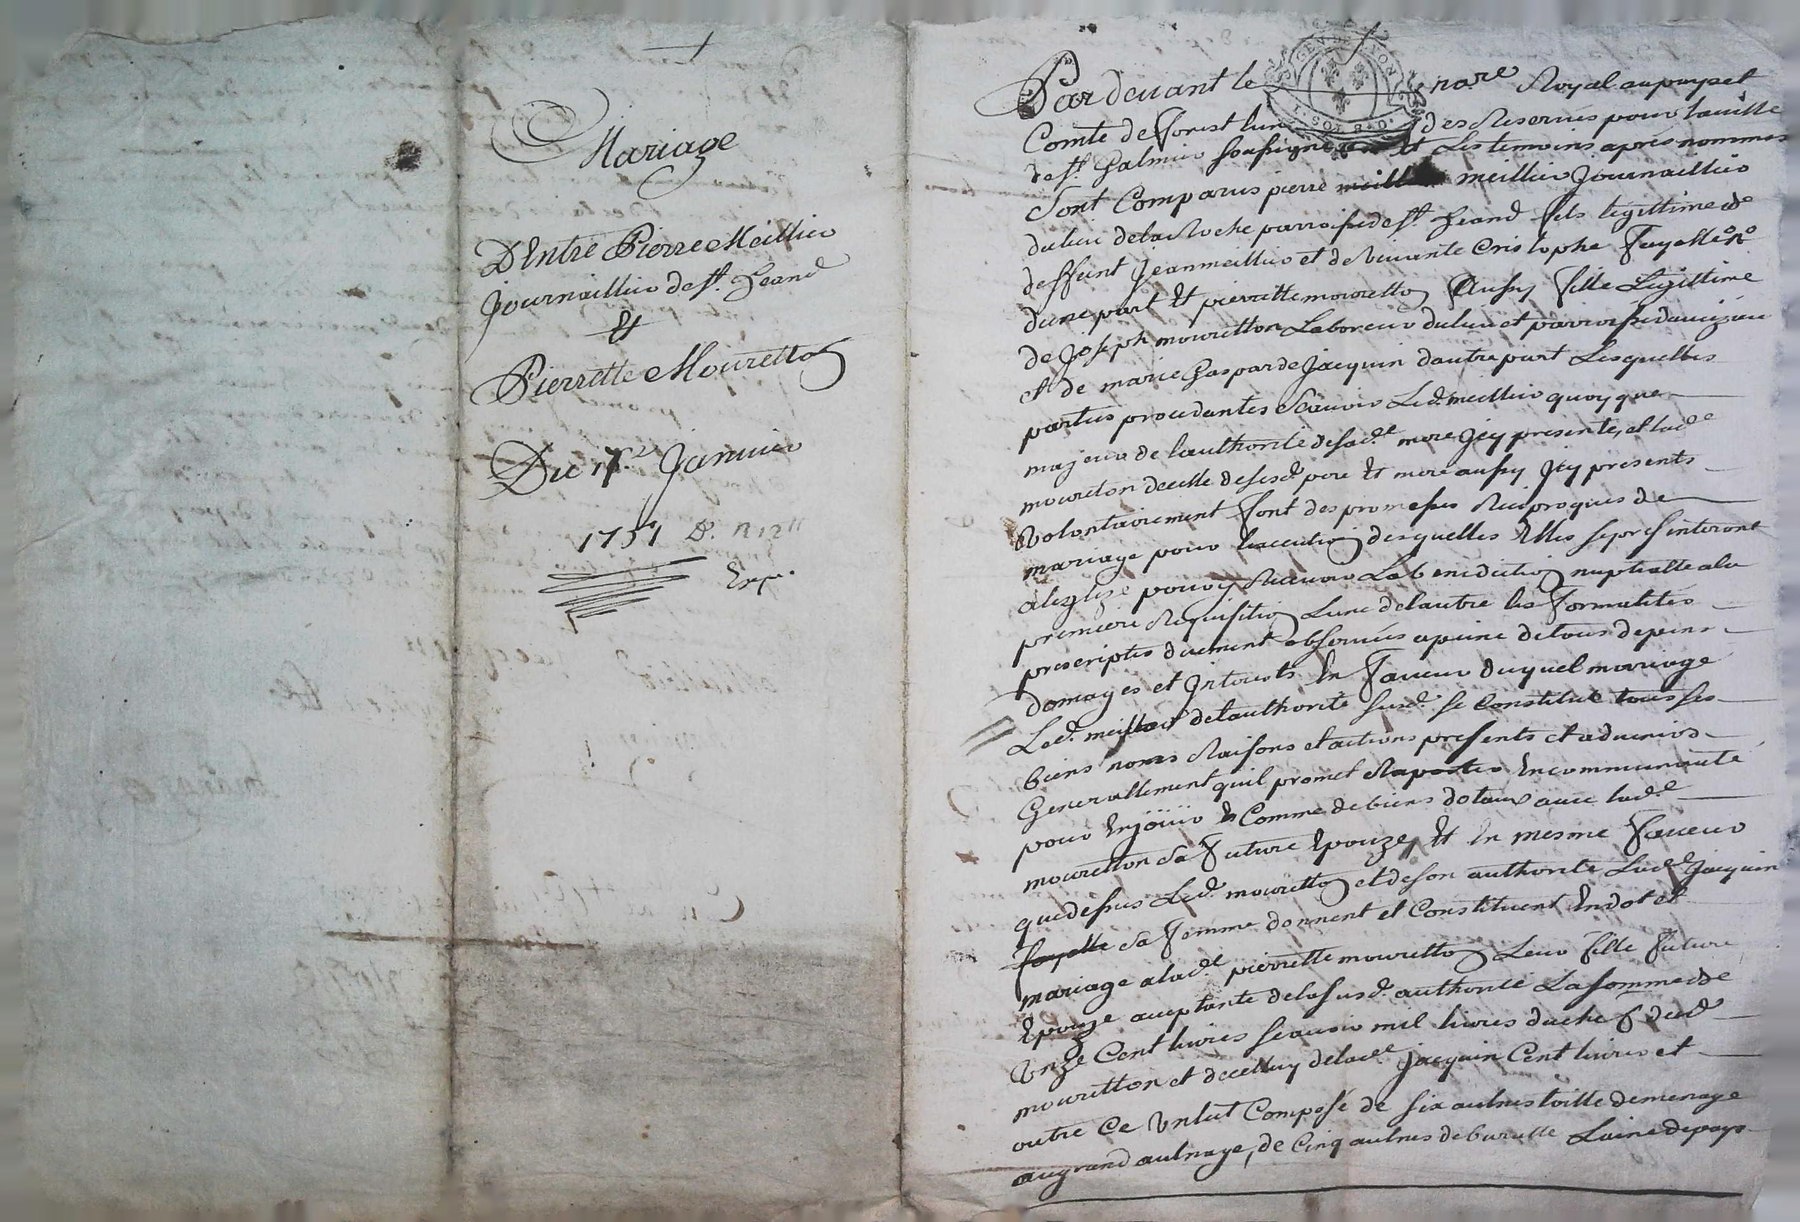 Mariage
D'Entre Pierre Meillier
Journaillier de St. heand
Et
Pierrette Mouretton
Du Janvier
1751
Exp.
GEN DE LYON
Par devant le nore Royal au pays et
Comté de Forest lun des Reservés pour la ville
de St. Galmier soussigné Et Les temoins après nommés
Sont Comparus pierre meillier Journaillier
du lieu de la Roche parroisse de St. heand fils legittime de
deffunt Jean meillier et de vivante Cristophe Fayolle
dune part Et pierrette mouretton Aussy fille Legittime
de Joseph mouretton Laboreur du lieu et parroisse
et de marie Gasparde Jacquin dautre part Lesquelles
parties procedantes Scavoir Led. meillier quoyque
majeur de lauthorité de sad.e mere Jcy presente, et lad.e
mouretton de celle de sesd. pere Et mere aussy Jcy presents
Volontairement font des promesses Reciproques de
mariage pour lexecution desquelles Elles se presenteront
a leglize pour y Recevoir La benediction nuptialle a la
premiere Requisition Lune de lautre les formalités
prescriptes duement observées a peine de tous depens
domages et Jnterests En faveur duquel mariage
Led. meillier de lauthorité susd. se Constitue tous ses
biens noms Raisons et actions presents et advenirs
Generallement quil promet Raporter En communauté
pour En joüir Comme de biens dotaux avec lad.e
mouretton sa future Epouze, Et En mesme faveur
que dessus Led. mouretton et de son authorité Lad.e Jacquin
fayolle sa femme donnent et Constituent En dot et
mariage a lad.e pierrette mouretton Leur fille future
Epouze acceptante de la susd. authorité La somme de
Unze Cent livres scavoir mil livres du chef dud.
mouretton et de celluy de lad.e Jacquin Cent livres et
outre Ce Un lut Composé de six aulnes toille de menage
au grand aulnage, de Cinq aulnes de buratte Laine de pays